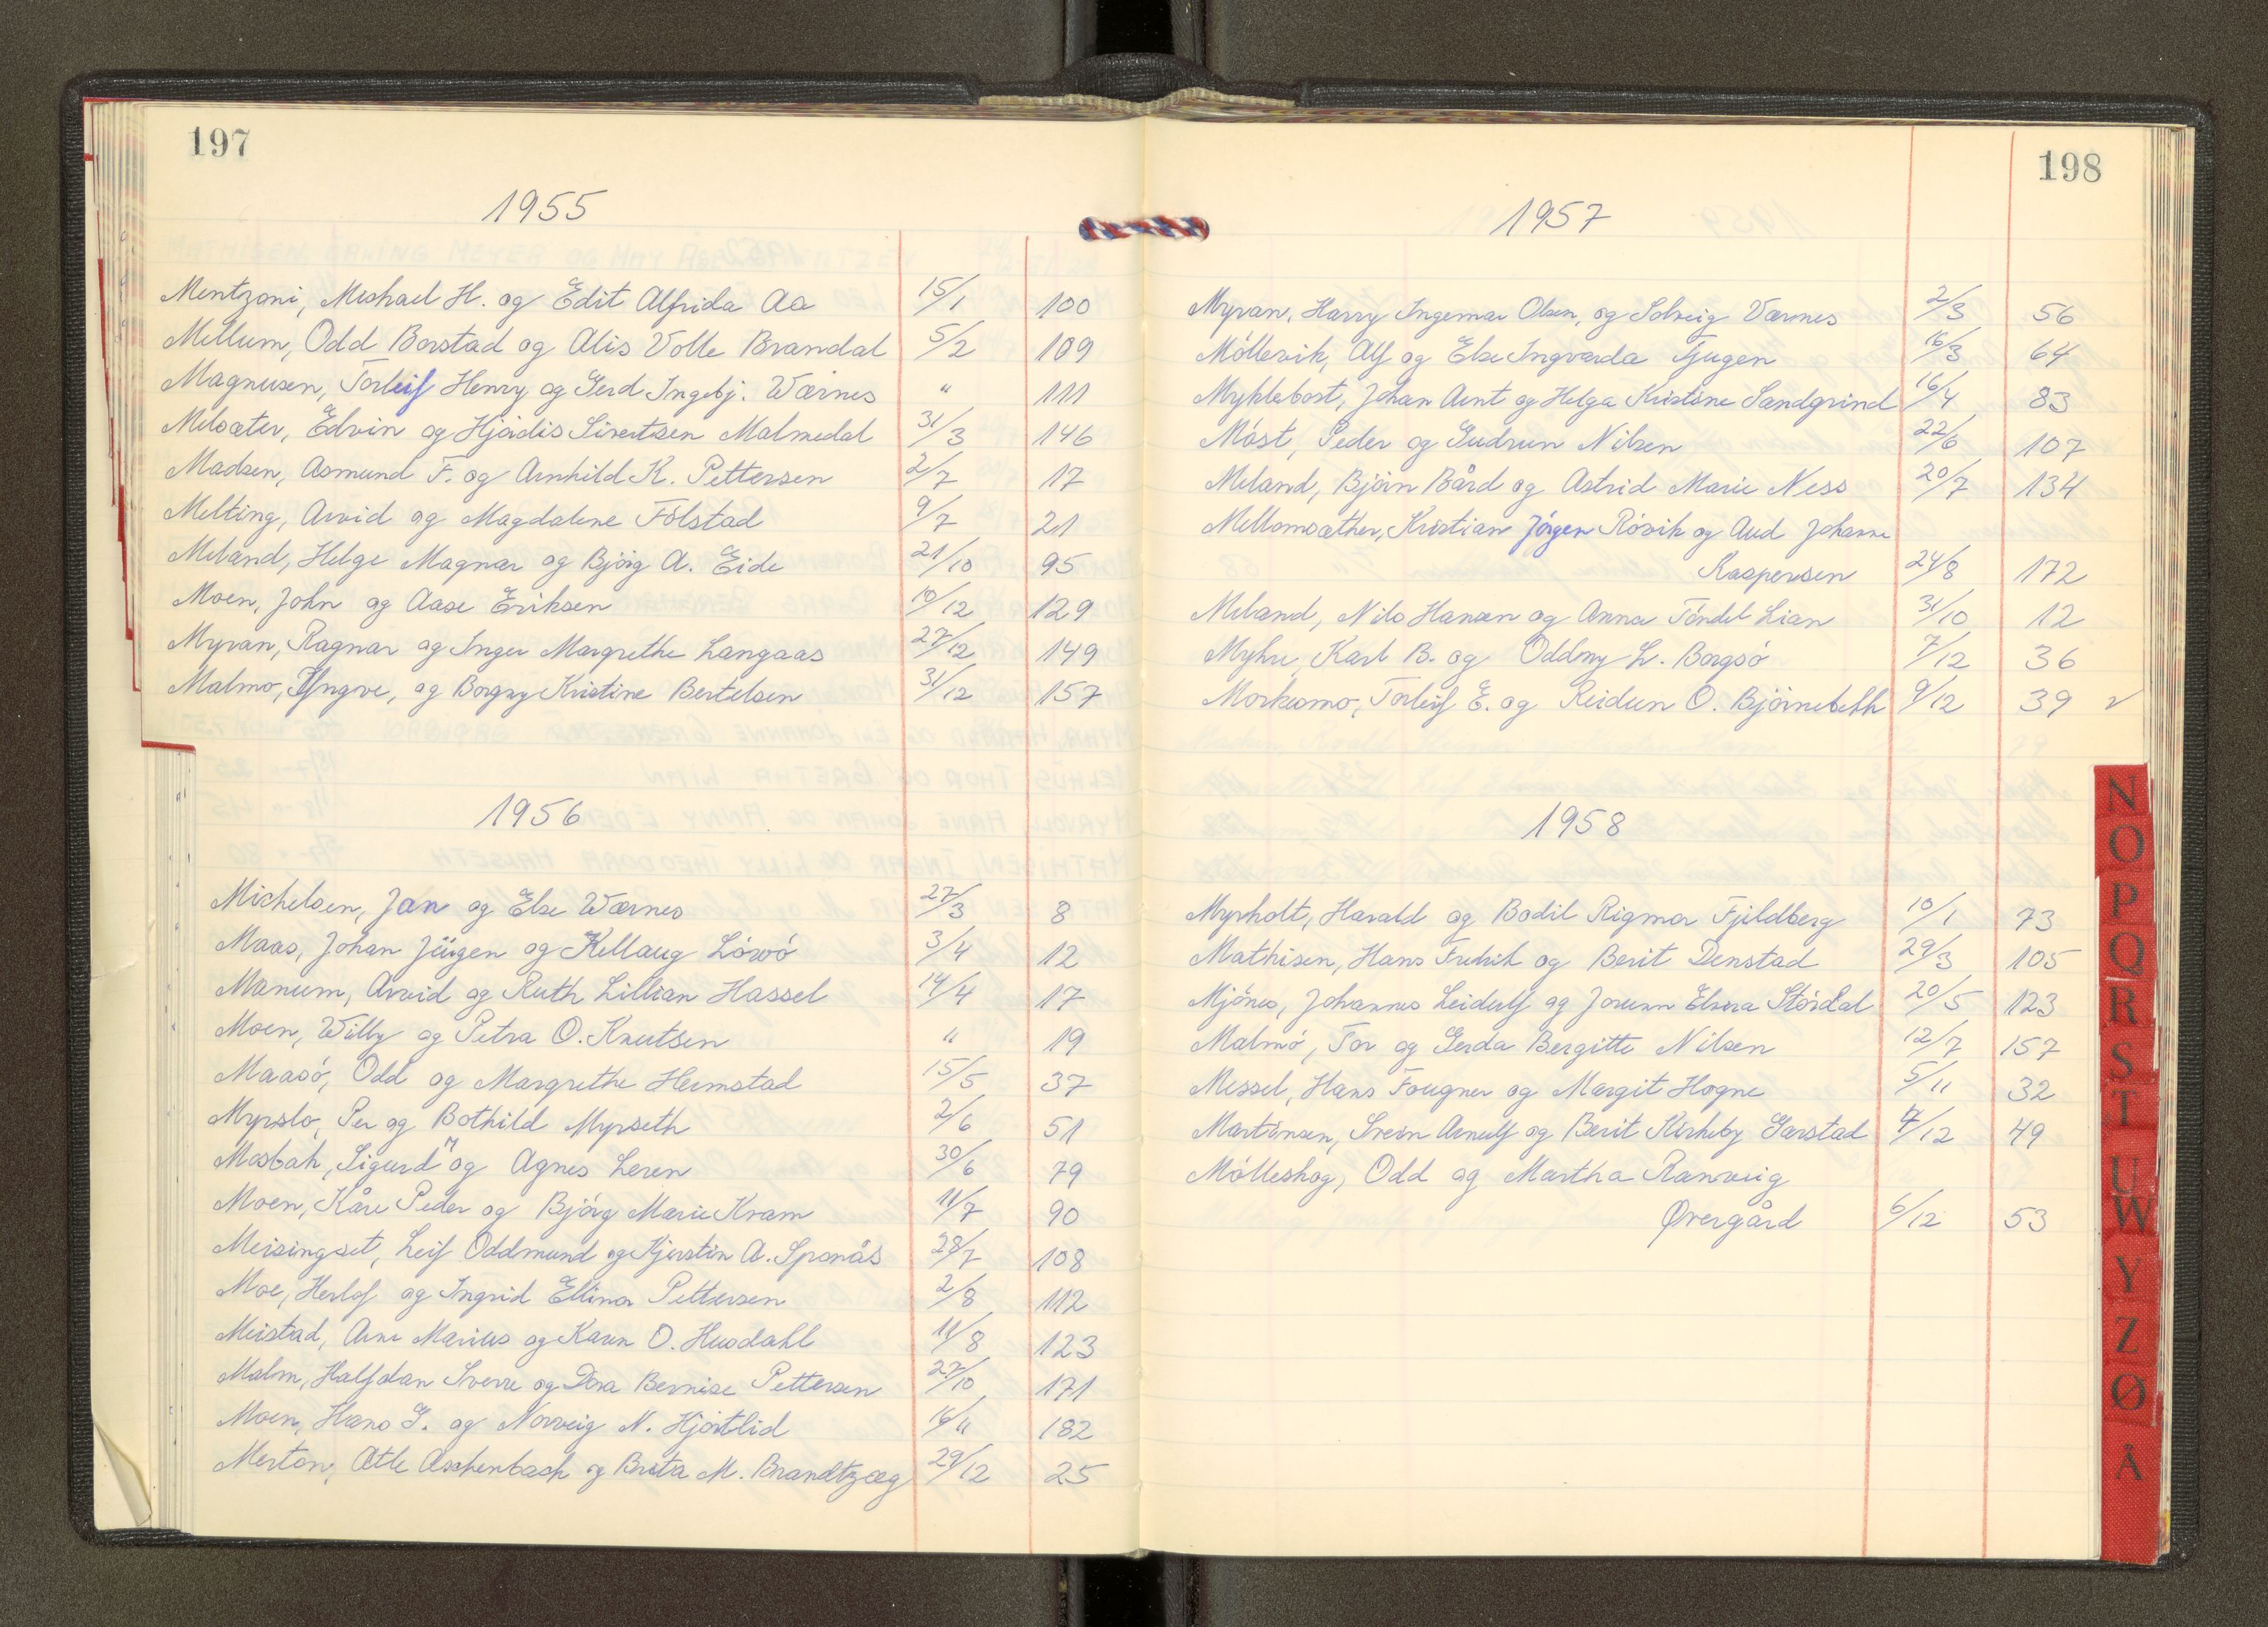 197
1955
Mentzoni, Michael H. og Edit Alfrida Aa 15/1 100
Mellum, Odd Borstad og Alis Volle Brandal 5/2 109
Magnusen, Torleif Henry og Gerd Ingebj. Wærnes " 111
Melsæter, Edvin og Hjördis Sivertsen Malmedal 31/3 146
Madsen, Asmund F. og Arnhild K. Pettersen 2/7 17
Melting, Arvid og Magdalene Fölstad 9/7 21
Meland, Helge Magnar og Björg A. Eide 21/10 95
Moen, John og Aase Eriksen 10/12 129
Myran, Ragnar og Inger Margrethe Langaas 27/12 149
Malmo, Yngve, og Borgny Kristine Bertelsen 31/12 157
1956
Michelsen, Jan og Else Wærnes 27/3 8
Maas, Johan Jürgen og Kellaug Lövö 3/4 12
Manum, Arvid og Ruth Lillian Hassel 14/4 17
Moen, Willy og Petra O. Knutsen " 19
Maasö, Odd og Margrethe Hermstad 15/5 37
Myrslo, Per og Bothild Myrseth 2/6 51
Mosbak, Sigurd M og Agnes Leren 30/6 79
Moen, Kåre Peder og Björg Marie Kram 11/7 90
Meisingset, Leif Oddmund og Kjerstin A. Sponås 28/7 108
Moe, Herlof og Ingrid Ellinor Pettersen 2/8 112
Meistad, Arne Marius og Karen O. Husdahl 11/8 123
Malm, Halfdan Sverre og Dora Bernise Pettersen 27/10 171
Moen, Hans G. og Norveig N. Hjörtlid 16/11 182
Merton, Atle Aschenbach og Brita M. Brandtzæg 29/12 25
198
1957
Myran, Harry Ingemar Olsen, og Solveig Værnes 2/3 56
Möllevik, Alf og Else Ingvarda Tjugen 16/3 64
Myklebost, Johan Arnt og Helga Kristine Sandgrind 16/4 83
Möst, Peder og Gudrun Nilsen 22/6 107
Meland, Björn Bård og Astrid Marie Ness 20/7 134
Mellomsæther, Kristian Jörgen Rövik og Aud Johanne
Kaspersen 24/8 172
Meland, Nils Hansen og Anna Töndel Lian 31/10 12
Myhre, Karl B. og Oddny L. Borgsö 7/12 36
Morkusmo, Torleif E. og Reidun O. Björnebekk 9/12 39
1958
Myrholt, Harald og Bodil Rigmor Fjeldberg 10/1 73
Mathisen, Hans Fredrik og Berit Denstad 29/3 105
Mjönes, Johannes Leidulf og Jorunn Elvira Stördal 20/5 123
Malmö, Tor og Gerda Bergitte Nilsen 12/7 157
Messel, Hans Fougner og Margit Hogne 5/11 32
Martinsen, Svein Arnulf og Berit Kirkeby Garstad 7/12 49
Mölleskog, Odd og Martha Ranveig
Øvergård 6/12 53
N
O
P
Q
R
S
T
U
W
Y
Z
Ø
Å